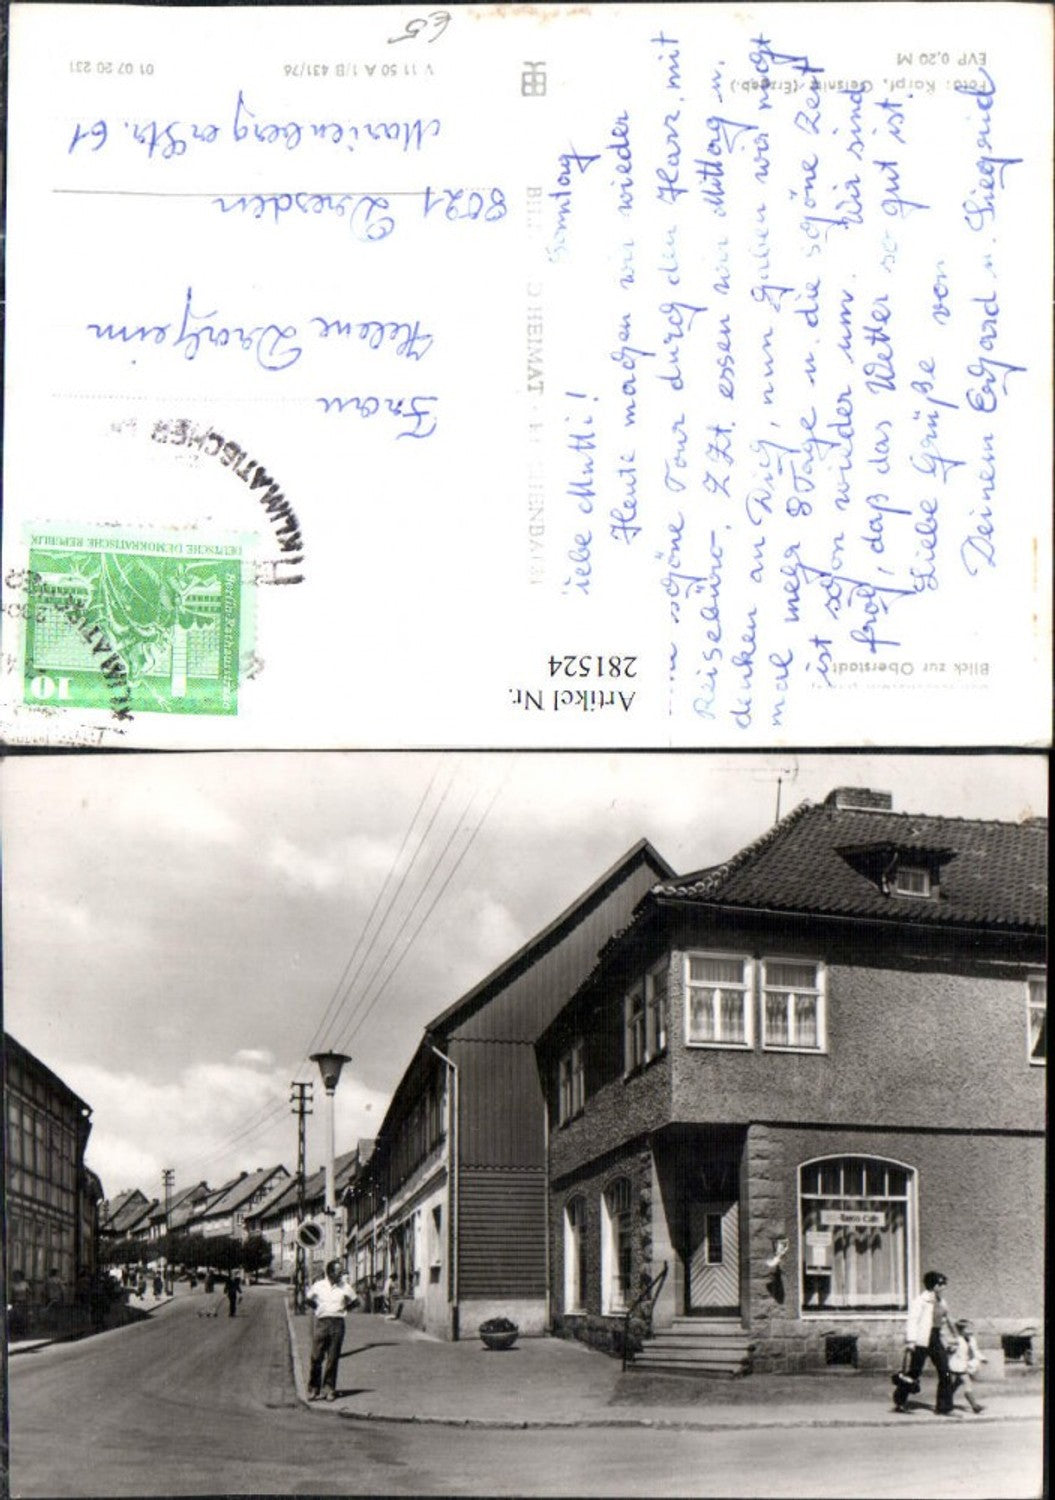 Blick zur Oberstadt
Foto: Karpf, Geisnitz (Erzgeb.)
EVP 0,20 M
BILD HEIMAT REICHENBACH
V 11 50 A 1/B 431/76
01 07 20 231
Artikel Nr.
281524
€5
Sonntag
Liebe Mutti!
Heute machen wir wieder
schöne Tour durch den Harz, mit
Reisebüro. Z. Zt. essen wir Mittag u.
denken an Dich, nun haben wir nicht
mal mehr 8 Tage u. die schöne Zeit
ist schon wieder um. Wir sind
froh, daß das Wetter so gut ist.
Liebe Grüße von
Deinem Erhard u. Siegrid
Frau
Helene
8021 Dresden
Marienberger Str. 61
DEUTSCHE DEMOKRATISCHE REPUBLIK
Berlin, Rathausstraße
10
KLIMATISCHER
KLIMATISCHER